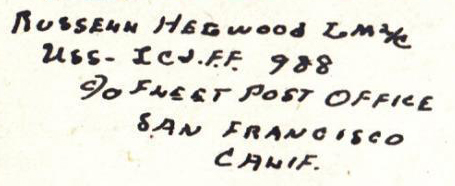 Russell Hegwood EM2/c
USS- LCI.F.F. 988
c/o Fleet Post Office
San Francisco
Calif.